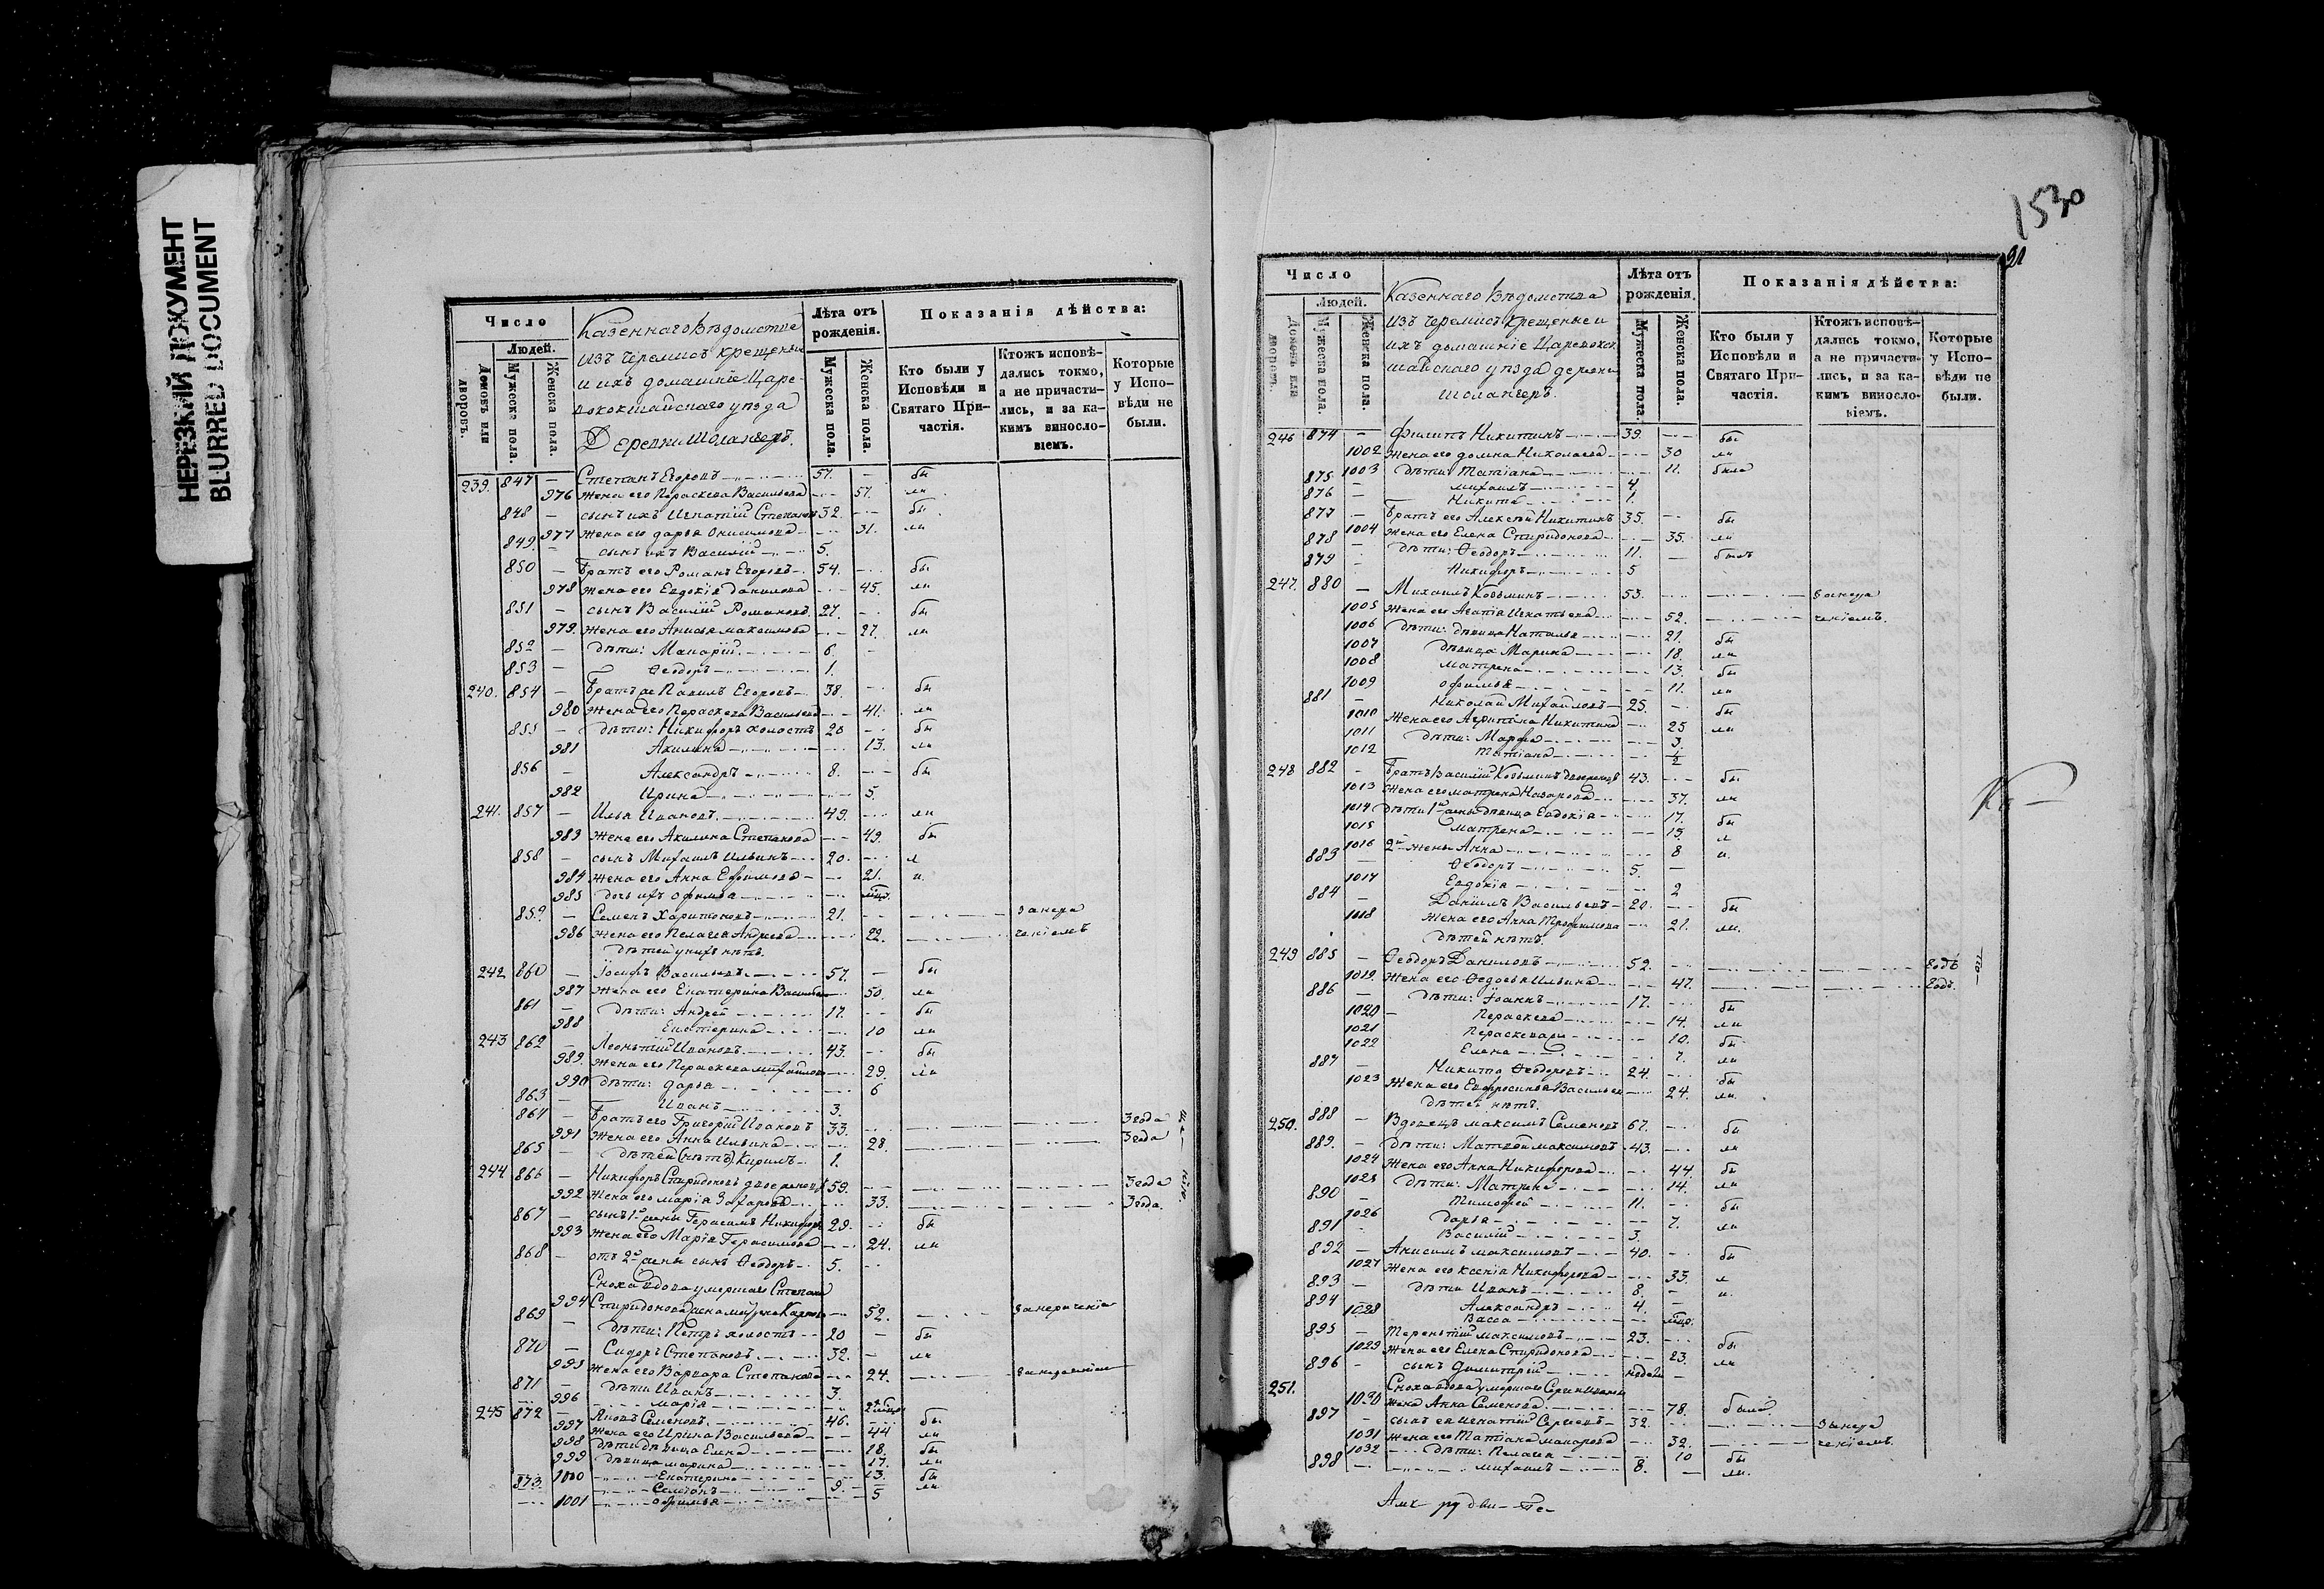 НЕРЕЗКИЙ ДОКУМЕНТ
BLURRED DOCUMENT
Число
Людей.
Домовъ или дворовъ.
Мужеска пола.
Женска пола.
Казеннаго Вѣдомства
изъ черемисъ крещеные
и ихъ домашніе Царе-
вококшайскаго уѣзда
Деревни Шолангеръ.
Лѣта отъ рожденія.
Мужеска пола.
Женска пола.
Показанія дѣйства:
Кто были у Исповѣди и Святаго При-частія.
Ктожъ исповѣ-дались токмо, а не причасти-лись, и за ка-кимъ винosло-віемъ.
Которые у Испо-вѣди не были.
239. 847 — Степанъ Егоровъ 57. — бы
976 Жена его Параскева Васильева — 57. ли
848 — сынъ ихъ Игнатій Степановъ 32. — бы
977 Жена его Дарья Онисимова — 31. ли
849. — сынъ ихъ Василій 5.
850 — Братъ его Романъ Егоровъ 54. — бы
978 Жена его Евдокія Данилова — 45. ли
851 — сынъ Василій Романовъ 27. — бы
979. Жена его Анисья Максимова — 27. ли
852 — дѣти: Макарій 6. —
853 — Ѳеодоръ 1.
240. 854 — Братъ ее Павелъ Егоровъ 38. — бы
980 Жена его Параскева Васильева — 41. ли
855 — дѣти: Никифоръ холостъ 20 — бы
981 Акилина — 13. ли
856 — Александръ 8. — бы
982 Ирина — 5.
241. 857 — Илья Ивановъ 49. — ли
983 Жена его Акилина Степанова — 49. бы
858 — сынъ Михаилъ Ильинъ 20. — л
984 Жена его Анна Ефимова — 21. и.
985 дочь ихъ Офимья
859. — Семенъ Харитоновъ 21. — занера
986 Жена его Пелагея Андреева — 22. ченіемъ
Дѣтей у нихъ нѣтъ.
242 860 — Іосифъ Васильевъ 57. — бы
987 Жена его Екатерина Васильева — 50. ли
861 — Дѣти: Андрей 17. — бы
988 Екатерина — 10 ли
243 862 — Леонтій Ивановъ 43. — бы
989. Жена его Параскева Михайлова — 29. ли
990 дѣти: Дарья — 6
863 — Иванъ 3.
864 — Братъ его Григорій Ивановъ 33. 3 года
991 Жена его Анна Ильина — 28. 3 года
865 — дѣтей (нѣтъ) Кирилъ 1.
244 866 — Никифоръ Спиридоновъ 59. 3 года
992 Жена его Марія Захарова — 33. 3 года.
867 — сынъ 1й жены Герасимъ Никифор 29. — бы
993 Жена его Марія Герасимова — 24. ли
868 — отъ 2й жены сынъ Ѳеодоръ 5.
Сноха вдова умершаго Степана
994 Спиридонова — 52. занераченіе
869 — Дѣти: Петръ холостъ 20 — бы
870 — Сидоръ Степановъ 32. — ли
995 Жена его Варвара Степанова — 24.
871 — дѣти Иванъ 3.
996 Марія
245 872 — Яковъ Семеновъ 46. — бы
997 Жена его Ирина Васильева — 44 ли
998 Дѣти дѣвица Елена — 18. бы
999 дѣвица Марина — 17. ли
1000 Екатерина — 13. бы
873. Семіонъ 9. — ли
1001 Офимья 5
1530
Число
Людей.
Домовъ или дворовъ.
Мужеска пола.
Женска пола.
Казеннаго Вѣдомства
изъ черемисъ крещеные и
ихъ домашніе Царевокок
шайскаго уѣзда деревни
Шолангеръ.
Лѣта отъ рожденія.
Мужеска пола.
Женска пола.
Показанія дѣйства:
Кто были у Исповѣди и Святаго При-частія.
Ктожъ исповѣ-дались токмо, а не причасти-лись, и за ка-кимъ винoсло-віемъ.
Которые у Испо-вѣди не были.
246 874 — Филипъ Никитинъ 39. — бы
1002 Жена его Домна Николаева — 30 ли
1003 Дѣти: Татіана — 11. была
875 — Михаилъ 4.
876 — Никита 1.
877 — Братъ его Алексѣй Никитинъ 35. — бы
1004 Жена его Елена Спиридонова — 35. ли
878 — Дѣти: Ѳеодоръ 11. — былъ
879 — Никифоръ 5
247. 880 — Михаилъ Козьминъ 53. — занера
1005 Жена его Агапія Игнатьева — 52. ченіемъ.
1006 Дѣти: дѣвица Наталья — 21. бы
1007 Дѣвица Марина — 18. ли
1008 Матрена — 13. бы
1009 Офимья — 11. ли
881 — Николай Михайловъ 25. — бы
1010 Жена его Агрипина Никитина — 25 ли
1011 Дѣти: Марфа — 3.
1012 Татіана — 1/2
248 882 — Братъ Василій Козьминъ 43. — бы
1013 Жена его Матрена Назарова — 37. ли
1014 Дѣти 1й жены дѣвица Евдокія — 17. бы
1015 Матрена — 15. л
1016 2й жены Анна — 8 и.
883 — Ѳеодоръ 5. —
1017 Евдокія — 2
884 — Даніилъ Васильевъ 20. — бы
1018 Жена его Анна Трофимова — 21. ли.
Дѣтей нѣтъ.
249 885 — Ѳеодоръ Даниловъ 52. — годъ
1019 Жена его Ѳедосья Ильина — 47. годъ.
886 — Дѣти: Іоаннъ 17. —
1020 Параскева — 14. бы
1021 — 10. ли
1022 Елена — 7. бы
887 — Никита Ѳеодоровъ 24. — ли
1023 Жена его Евфросинья Васильев — 24. бы
Дѣтей нѣтъ. ли
250. 888 — Вдовецъ Максимъ Семеновъ 67. — бы
889. — Дѣти: Матвей Максимовъ 43. — ли
1024 Жена его Анна Никифорова — 44 бы
1025 Дѣти: Матрена — 14. ли
890 — Тимофей 11. — бы
1026 Дарья — 7. ли
891 — Василій 3.
892 — Анисимъ Максимовъ 40. — бы
1027 Жена его Ксенія Никифорова — 33. л
893 — Дѣти Иванъ 8. — и.
894 — Александръ 4.
1028 Васса
895 — Терентій Максимовъ 23. — бы
1029 Жена его Елена Спиридонова — 23. ли
896 — сынъ Димитрій недели —
251. Сноха вдова умершаго
1030 Жена Анна Семенова — 78. была.
897 — сынъ ея Игнатій Сергѣевъ 32. — занера
1031 Жена его Татіана Макарова — 32. ченіемъ.
1032 Дѣти: Пелагея — 10 бы
898 — Михаилъ 8. — ли.